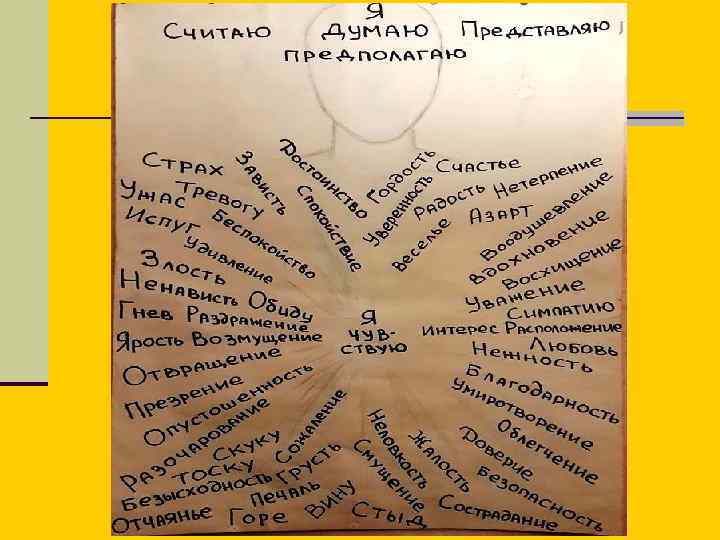 Я
Считаю Думаю Представляю
предполагаю
Страх
Зависть
Достоинство
Спокойствие
Гордость
Уверенность
Счастье
Радость
Нетерпение
Ужас
Тревогу
Испуг
Беспокойство
Удивление
Веселье
Азарт
Воодушевление
Вдохновение
Восхищение
Уважение
Симпатию
Злость
Ненависть Обиду
Гнев Раздражение
Ярость Возмущение
Я
чув-
ствую
Интерес Расположение
Любовь
Нежность
Отвращение
Презрение
Опустошенность
Разочарование
Скуку
Тоску
Безысходность
Отчаянье
Сожаление
Грусть
Печаль
Горе
Вину
Стыд
Смущение
Неловкость
Жалость
Сострадание
Благодарность
Умиротворение
Облегчение
Доверие
Безопасность